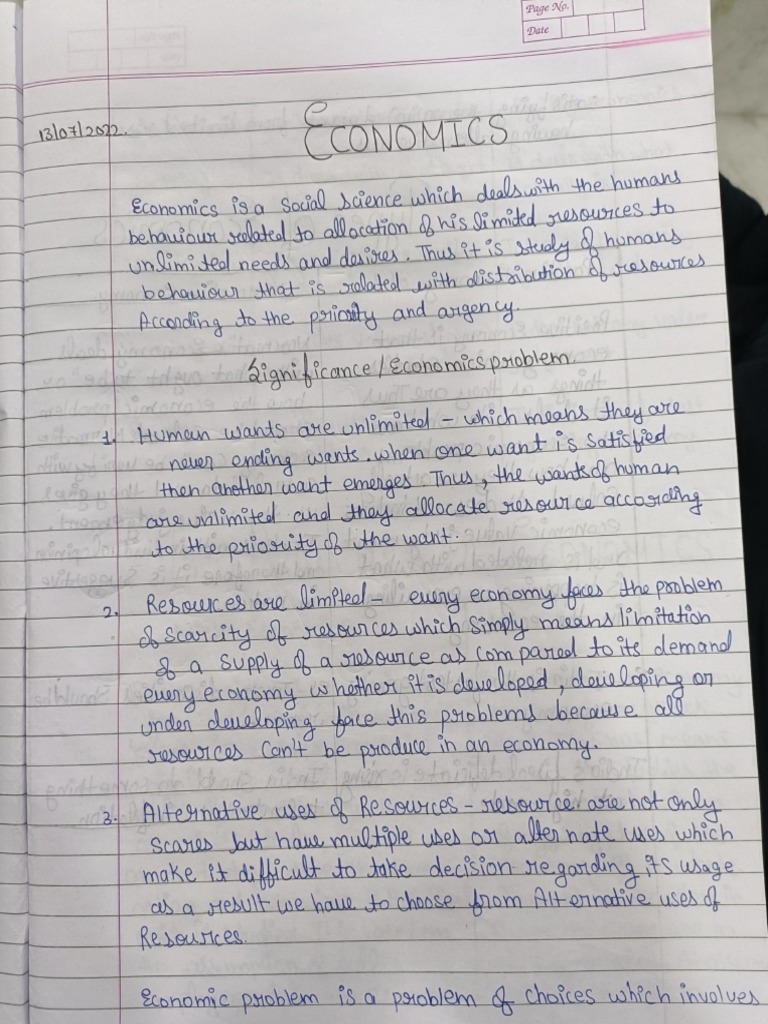 Page No.
Date
13/07/2022.
ECONOMICS
Economics is a Social Science which deals with the humans
behaviour related to allocation of his limited resources to
unlimited needs and desires. Thus it is study of humans
behaviour that is related with distribution of resources
According to the priority and argency.
Significance / Economics problem
1. Human wants are unlimited - which means they are
never ending wants. when one want is satisfied
then another want emerges Thus, the wants of human
are unlimited and they allocate resource according
to the priority of the want.
2. Resources are limited - every economy faces the problem
of scarcity of resources which simply means limitation
of a supply of a resource as compared to its demand
every economy whether it is developed, developing or
under developing face this problems because all
resources can't be produce in an economy.
3. Alternative uses of Resources - resource are not only
scares but have multiple uses or alternate uses which
make it difficult to take decision regarding its usage
as a result we have to choose from Alternative uses of
Resources.
Economic problem is a problem of choices which involves